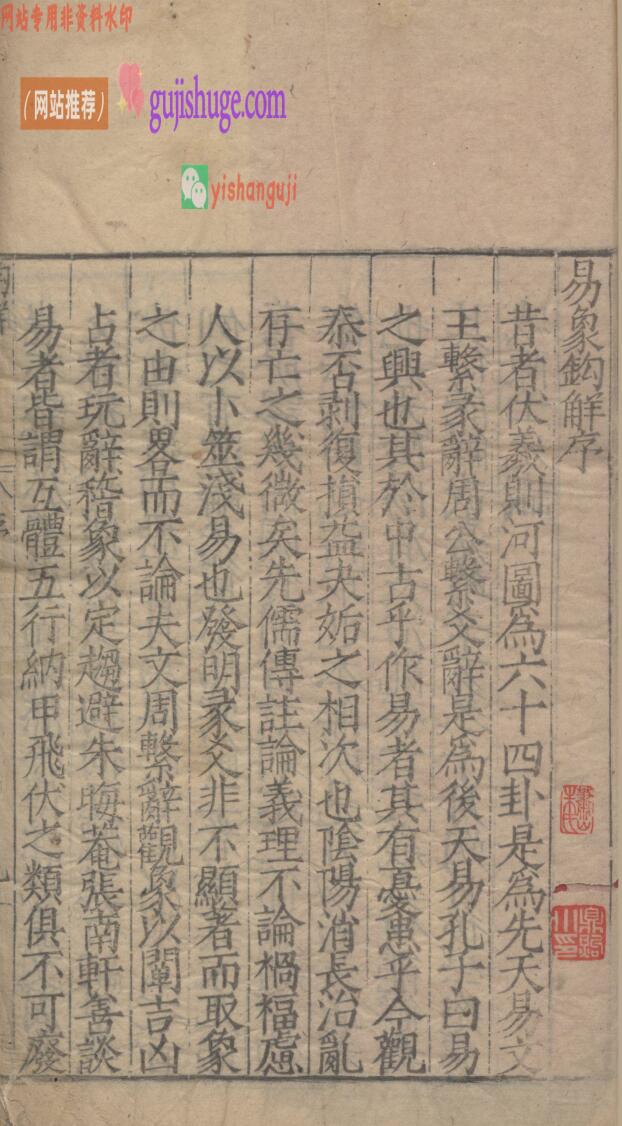 网站专用非资料水印
（网站推荐）
gujishuge.com
yishanguji
易象鈎解序
昔者伏羲則河圖為六十四卦是為先天易文
王繫彖辭周公繫爻辭是為後天易孔子曰易
之興也其於中古乎作易者其有憂患乎今觀
泰否剥復損益夬姤之相次也陰陽消長治亂
存亡之幾微矣先儒傳註論義理不論禍福慮
人以卜筮淺易也發明彖爻非不顯著而取象
之由則畧而不論夫文周繫辭觀象以闡吉凶
占者玩辭稽象以定趨避朱晦菴張南軒善談
易者皆謂互體五行納甲飛伏之類俱不可廢